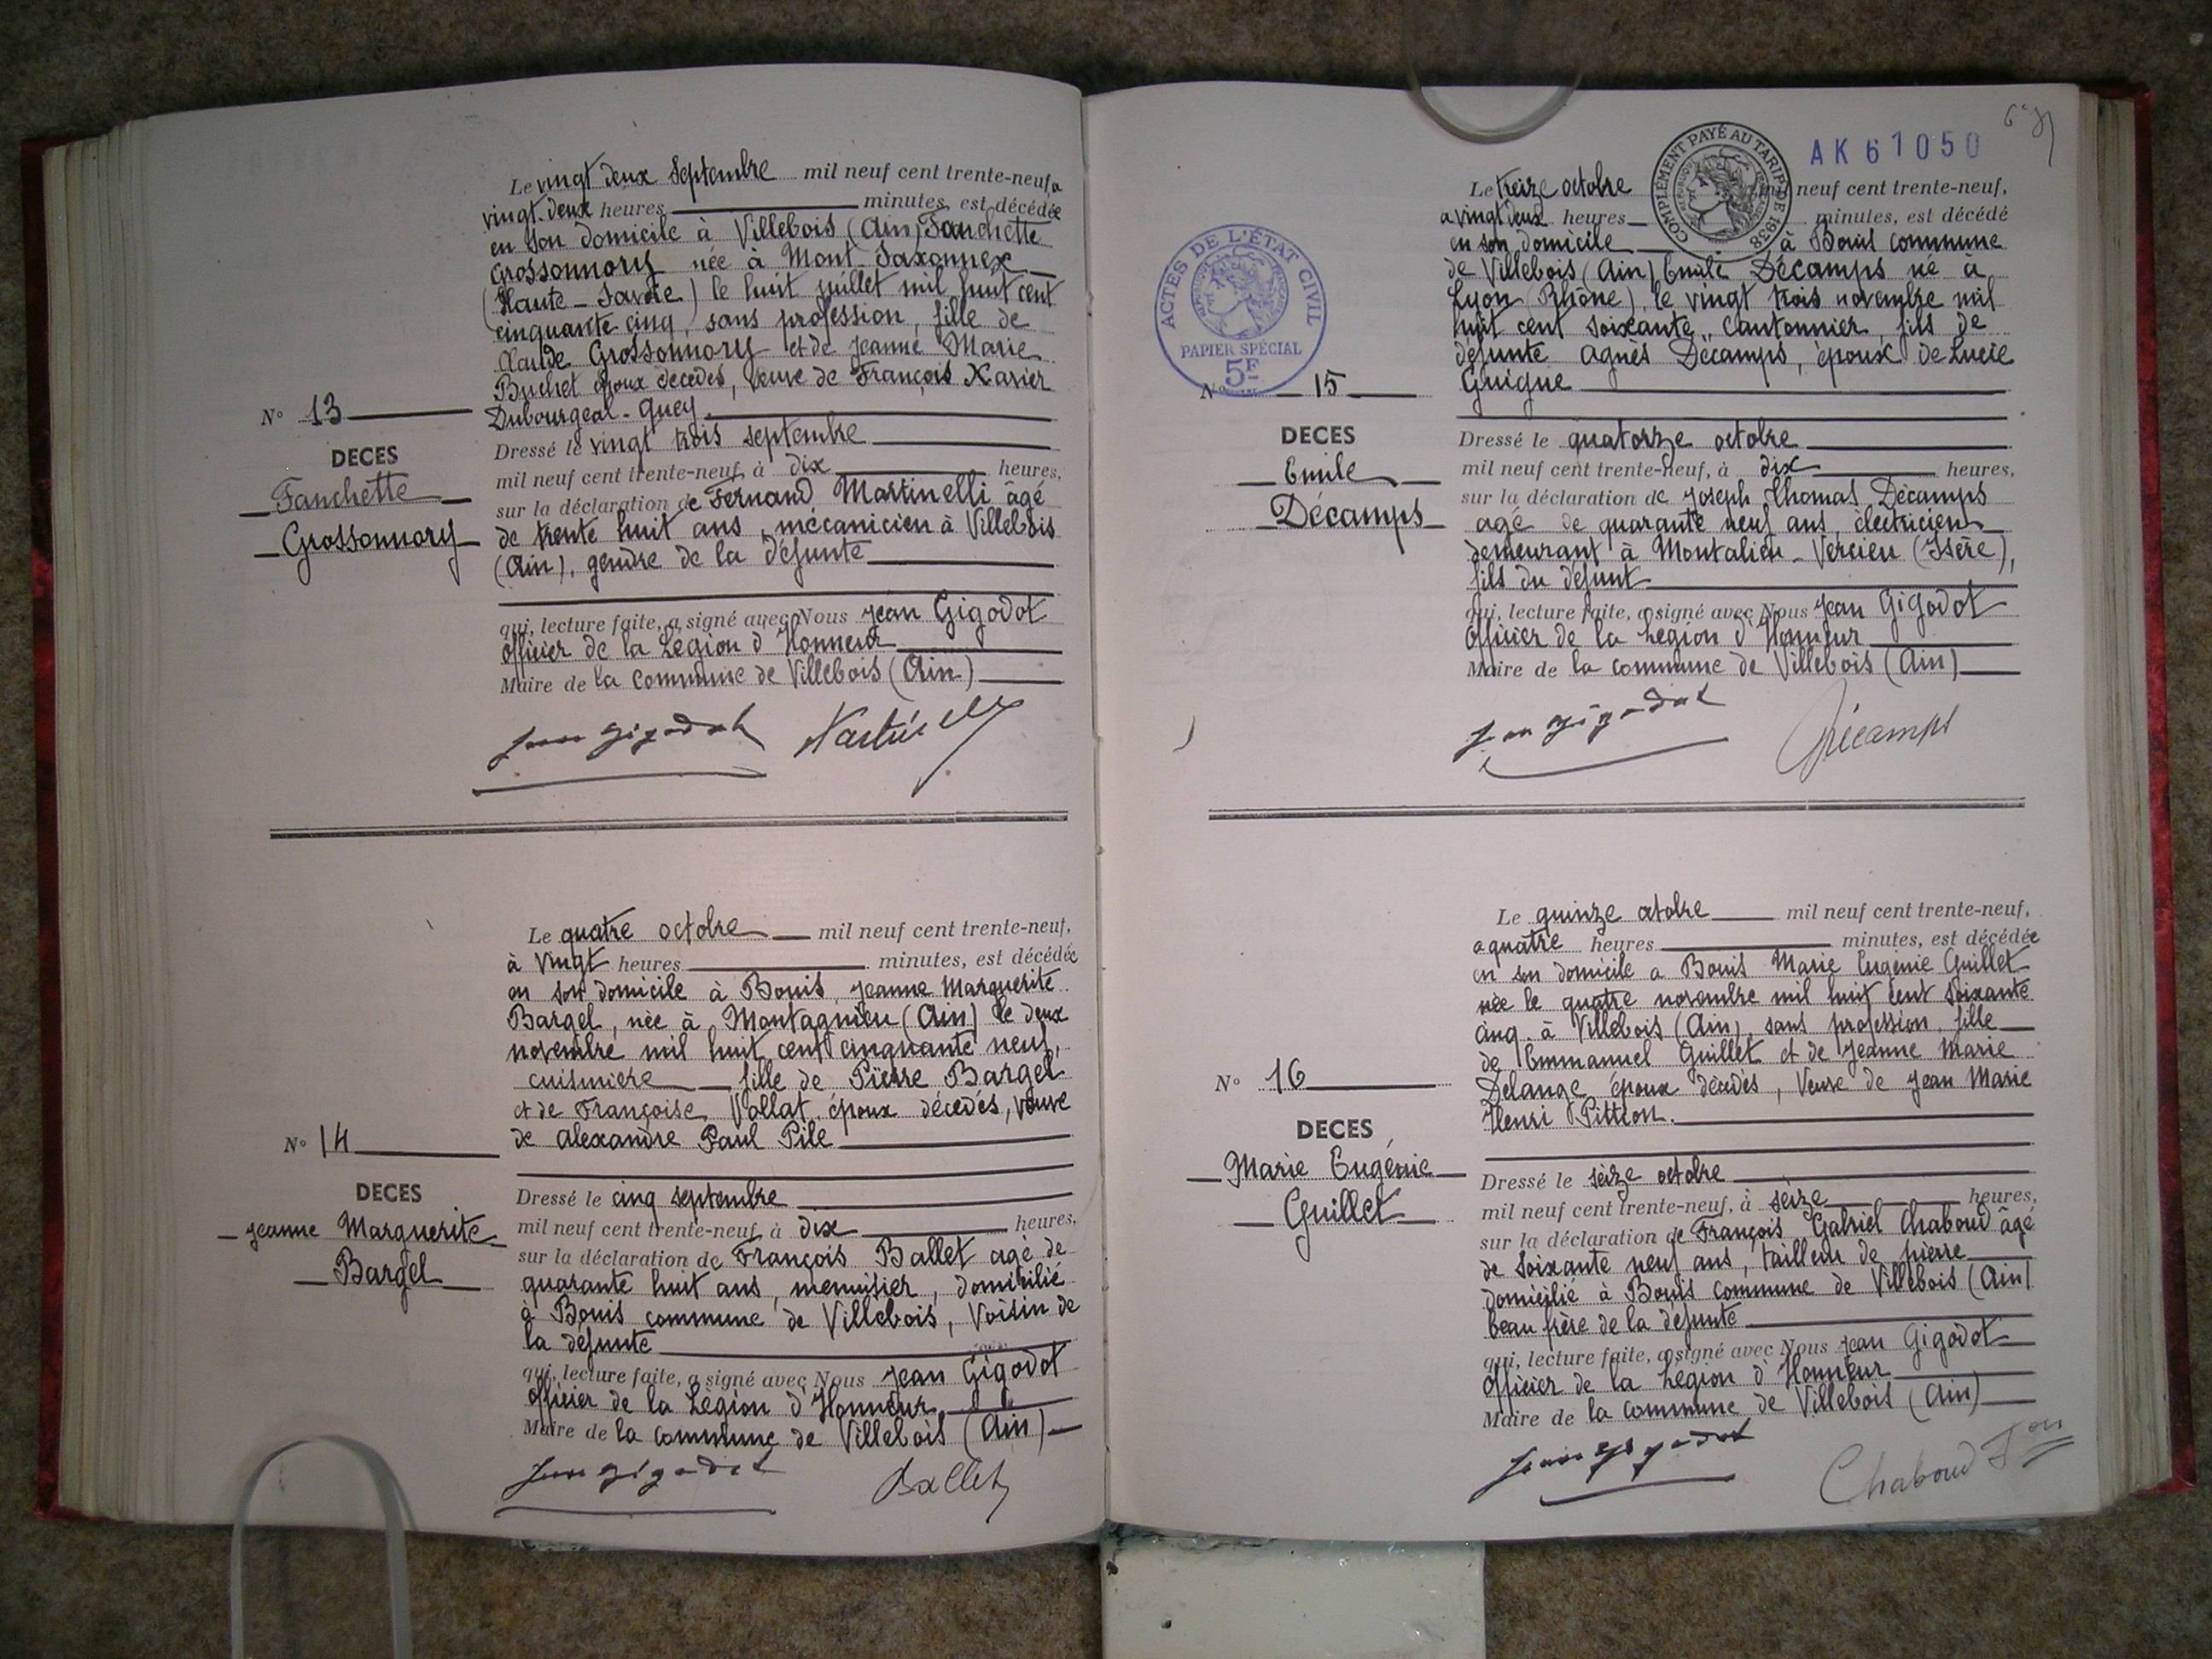 Le vingt deux Septembre mil neuf cent trente-neuf, a
vingt-deux heures minutes, est décédée
en son domicile à Villebois (Ain) Fanchette
Grossonnory née à Mont-Saxonnex
(Haute-Savoie) le huit juillet mil huit cent
cinquante cinq, sans profession, fille de
Claude Grossonnory et de Jeanne Marie
Buchet époux décédés, Veuve de François Xavier
Dubourgeal-Quey.
N° 13
DECES
Fanchette
Grossonnory
Dressé le vingt trois septembre
mil neuf cent trente-neuf, à dix heures,
sur la déclaration de Fernand Martinelli âgé
de trente huit ans, mécanicien à Villebois
(Ain), gendre de la défunte
qui, lecture faite, a signé avec Nous Jean Gigodot
Officier de la Légion d'Honneur
Maire de la commune de Villebois (Ain)
Jean Gigodot Martinelli
Le quatre octobre mil neuf cent trente-neuf,
à vingt heures minutes, est décédée
en son domicile à Bouis, Jeanne Marguerite
Bargel, née à Montagnieu (Ain) le deux
novembre mil huit cent cinquante neuf,
cuisinière fille de Pierre Bargel
et de Françoise Vallat époux décédés, veuve
de Alexandre Paul Pile
N° 14
DECES
Jeanne Marguerite
Bargel
Dressé le cinq septembre
mil neuf cent trente-neuf, à dix heures,
sur la déclaration de François Ballet agé de
quarante huit ans, menuisier, domicilié
à Bouis commune de Villebois, Voisin de
la défunte
qui, lecture faite, a signé avec Nous Jean Gigodot
Officier de la Légion d'Honneur
Maire de la commune de Villebois (Ain)
Jean Gigodot Ballet
AK 61050
COMPLÉMENT PAYÉ AU TARIF DE 1938
ACTES DE L'ÉTAT CIVIL
PAPIER SPÉCIAL
5F
Le treize octobre mil neuf cent trente-neuf,
a vingt deux heures minutes, est décédé
en son domicile à Bouis commune
de Villebois (Ain) Emile Décamps né à
Lyon (Rhône), le vingt trois novembre mil
huit cent soixante, Cantonnier, fils de
défunte Agnès Décamps, époux de Lucie
Guigue
N° 15
DECES
Emile
Décamps
Dressé le quatorze octobre
mil neuf cent trente-neuf, à dix heures,
sur la déclaration de Joseph Thomas Décamps
agé de quarante neuf ans, électricien
demeurant à Montalieu-Vercieu (Isère),
fils du défunt
qui, lecture faite, a signé avec Nous Jean Gigodot
Officier de la Légion d'Honneur
Maire de la commune de Villebois (Ain)
Jean Gigodot Décamps
Le quinze octobre mil neuf cent trente-neuf,
a quatre heures minutes, est décédée
en son domicile a Bouis Marie Eugénie Guillet
née le quatre novembre mil huit cent soixante
cinq à Villebois (Ain), sans profession, fille
de Emmanuel Guillet et de Jeanne Marie
Delange époux décédés, Veuve de Jean Marie
Henri Pittion.
N° 16
DECES
Marie Eugénie
Guillet
Dressé le seize octobre
mil neuf cent trente-neuf, à seize heures,
sur la déclaration de François Gabriel Chaboud âgé
de Soixante neuf ans, tailleur de pierre
domicilié à Bouis commune de Villebois (Ain)
beau frère de la défunte
qui, lecture faite, a signé avec Nous Jean Gigodot
Officier de la Légion d'Honneur
Maire de la commune de Villebois (Ain)
Jean Gigodot Chaboud Fois